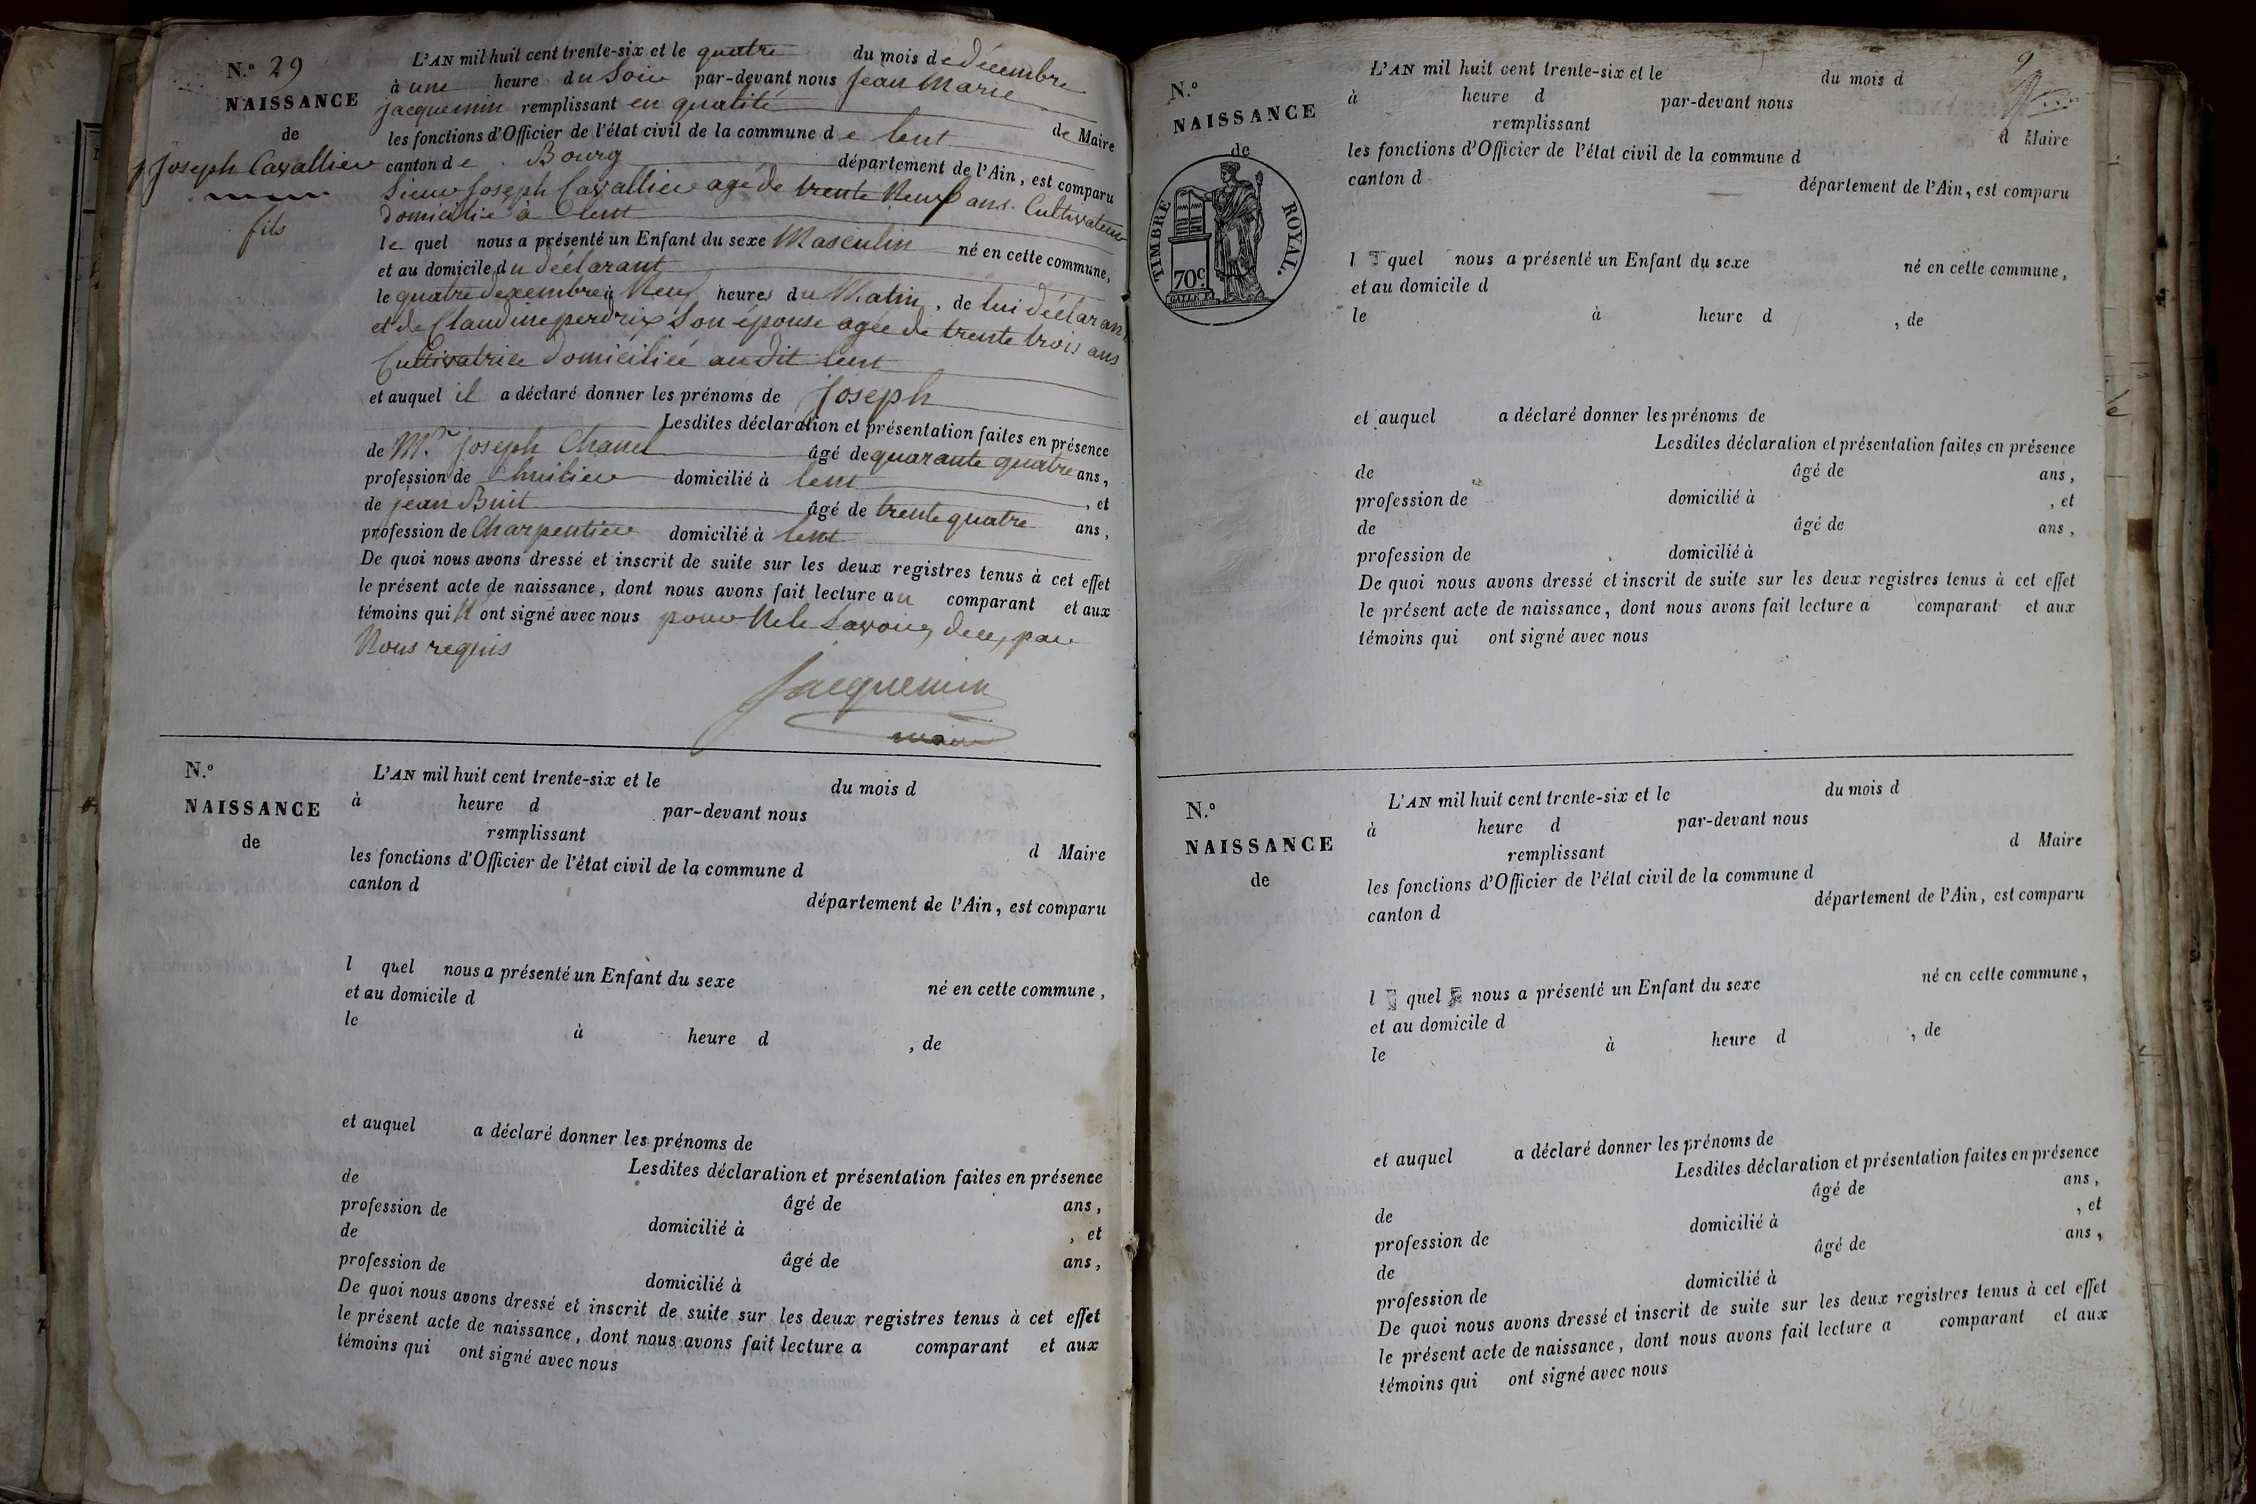 N.º 29
NAISSANCE
de
Joseph Cavallier
fils
L'AN mil huit cent trente-six et le quatre du mois de décembre
à une heure du Soir par-devant nous Jean Marie
jacquemin remplissant en qualité de Maire
les fonctions d'Officier de l'état civil de la commune de lent
canton de Bourg département de l'Ain, est comparu
Sieur Joseph Cavallier agé de trente Neuf ans Cultivateur
domicilié à lent
le quel nous a présenté un Enfant du sexe Masculin né en cette commune,
et au domicile du déclarant
le quatre dexembre à Neuf heures du Matin, de lui déclarant
et de Claudine perdrix Son épouse agée de trente trois ans
Cultivatrice domiciliée au dit lent
et auquel il a déclaré donner les prénoms de Joseph
Lesdites déclaration et présentation faites en présence
de Mr. joseph Chanel âgé de quarante quatre ans,
profession de domicilié à lent, et
de jean Buit âgé de trente quatre ans,
profession de Charpentier domicilié à lent
De quoi nous avons dressé et inscrit de suite sur les deux registres tenus à cet effet
le présent acte de naissance, dont nous avons fait lecture au comparant et aux
témoins qui N'ont signé avec nous pour Ne le Savoir, de ce, par
Nous requis
Jacquemin
maire
N.º
NAISSANCE
de
L'AN mil huit cent trente-six et le du mois d
à heure d par-devant nous
remplissant d Maire
les fonctions d'Officier de l'état civil de la commune d
canton d département de l'Ain, est comparu
l quel nous a présenté un Enfant du sexe né en cette commune,
et au domicile d
le à heure d , de
et auquel a déclaré donner les prénoms de
Lesdites déclaration et présentation faites en présence
de âgé de ans,
profession de domicilié à , et
de âgé de ans,
profession de domicilié à
De quoi nous avons dressé et inscrit de suite sur les deux registres tenus à cet effet
le présent acte de naissance, dont nous avons fait lecture a comparant et aux
témoins qui ont signé avec nous
9
N.º
NAISSANCE
de
TIMBRE ROYAL.
70c.
L'AN mil huit cent trente-six et le du mois d
à heure d par-devant nous
remplissant d Maire
les fonctions d'Officier de l'état civil de la commune d
canton d département de l'Ain, est comparu
l quel nous a présenté un Enfant du sexe né en cette commune,
et au domicile d
le à heure d , de
et auquel a déclaré donner les prénoms de
Lesdites déclaration et présentation faites en présence
de âgé de ans,
profession de domicilié à , et
de âgé de ans,
profession de domicilié à
De quoi nous avons dressé et inscrit de suite sur les deux registres tenus à cet effet
le présent acte de naissance, dont nous avons fait lecture a comparant et aux
témoins qui ont signé avec nous
N.º
NAISSANCE
de
L'AN mil huit cent trente-six et le du mois d
à heure d par-devant nous
remplissant d Maire
les fonctions d'Officier de l'état civil de la commune d
canton d département de l'Ain, est comparu
l quel nous a présenté un Enfant du sexe né en cette commune,
et au domicile d
le à heure d , de
et auquel a déclaré donner les prénoms de
Lesdites déclaration et présentation faites en présence
de âgé de ans,
profession de domicilié à , et
de âgé de ans,
profession de domicilié à
De quoi nous avons dressé et inscrit de suite sur les deux registres tenus à cet effet
le présent acte de naissance, dont nous avons fait lecture a comparant et aux
témoins qui ont signé avec nous